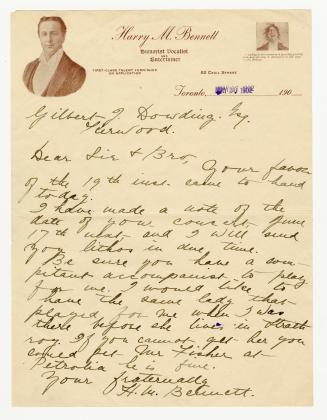 Harry M. Bennett
Humorist Vocalist
AND
Entertainer
FIRST-CLASS TALENT FURNISHED
ON APPLICATION
50 CECIL STREET
Toronto, MAY 20 1902 190
Gilbert J. Dowding. Esq.
Fernwood.
Dear Sir & Bro, Your favor
of the 19th inst. came to hand
today.
I have made a note of the
date of your concert, June
17th next and I will send
you lithos in due time.
Be sure you have a com-
pitant accompanist to play
for me. I would like to
have the same lady that
played for me when I was
there before she lives in Strath
roy. If you cannot get her you
could get Mr Fisher at
Petrolia he is fine.
Your fraternally
H. M. Bennett.